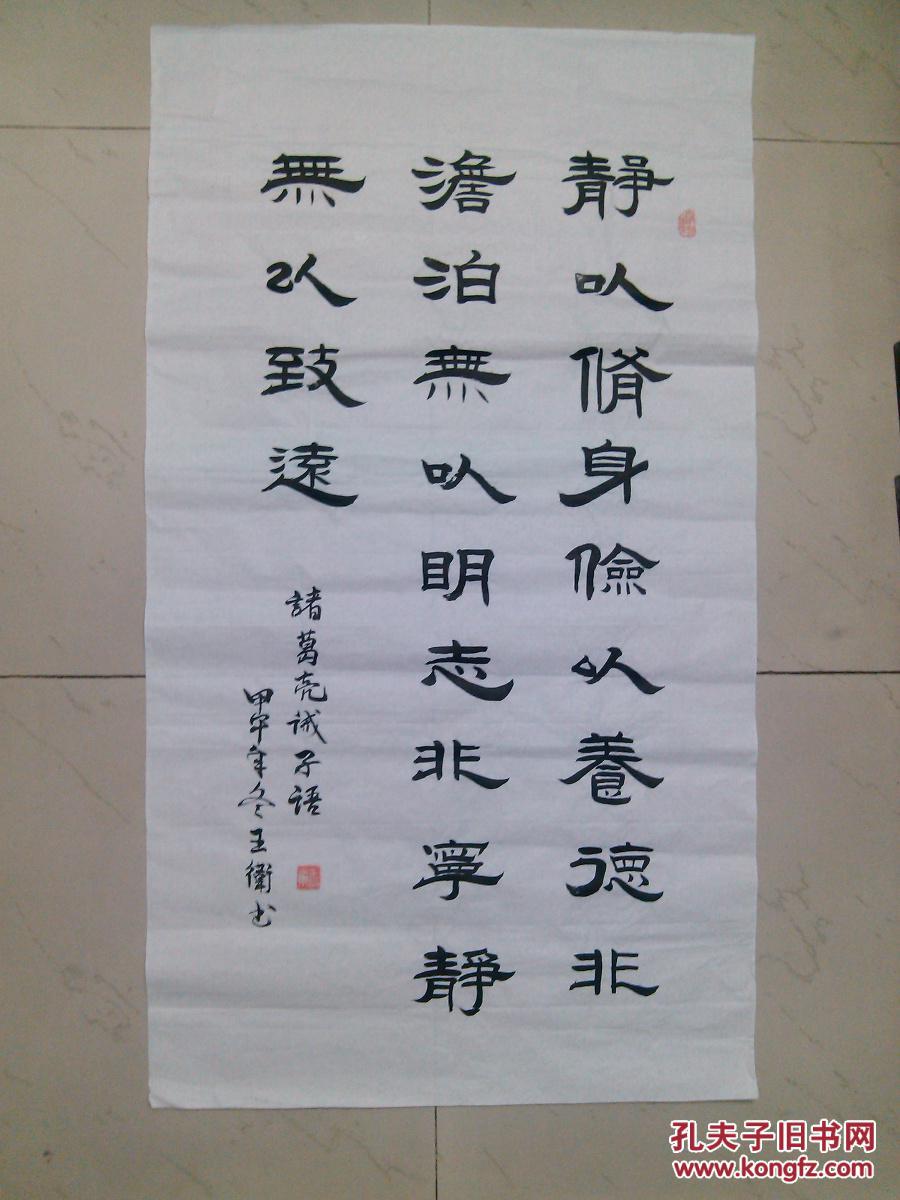 靜以脩身儉以養德非
澹泊無以明志非寧靜
無以致遠
諸葛亮诫子語
甲午年冬王衛书
孔夫子旧书网
www.kongfz.com